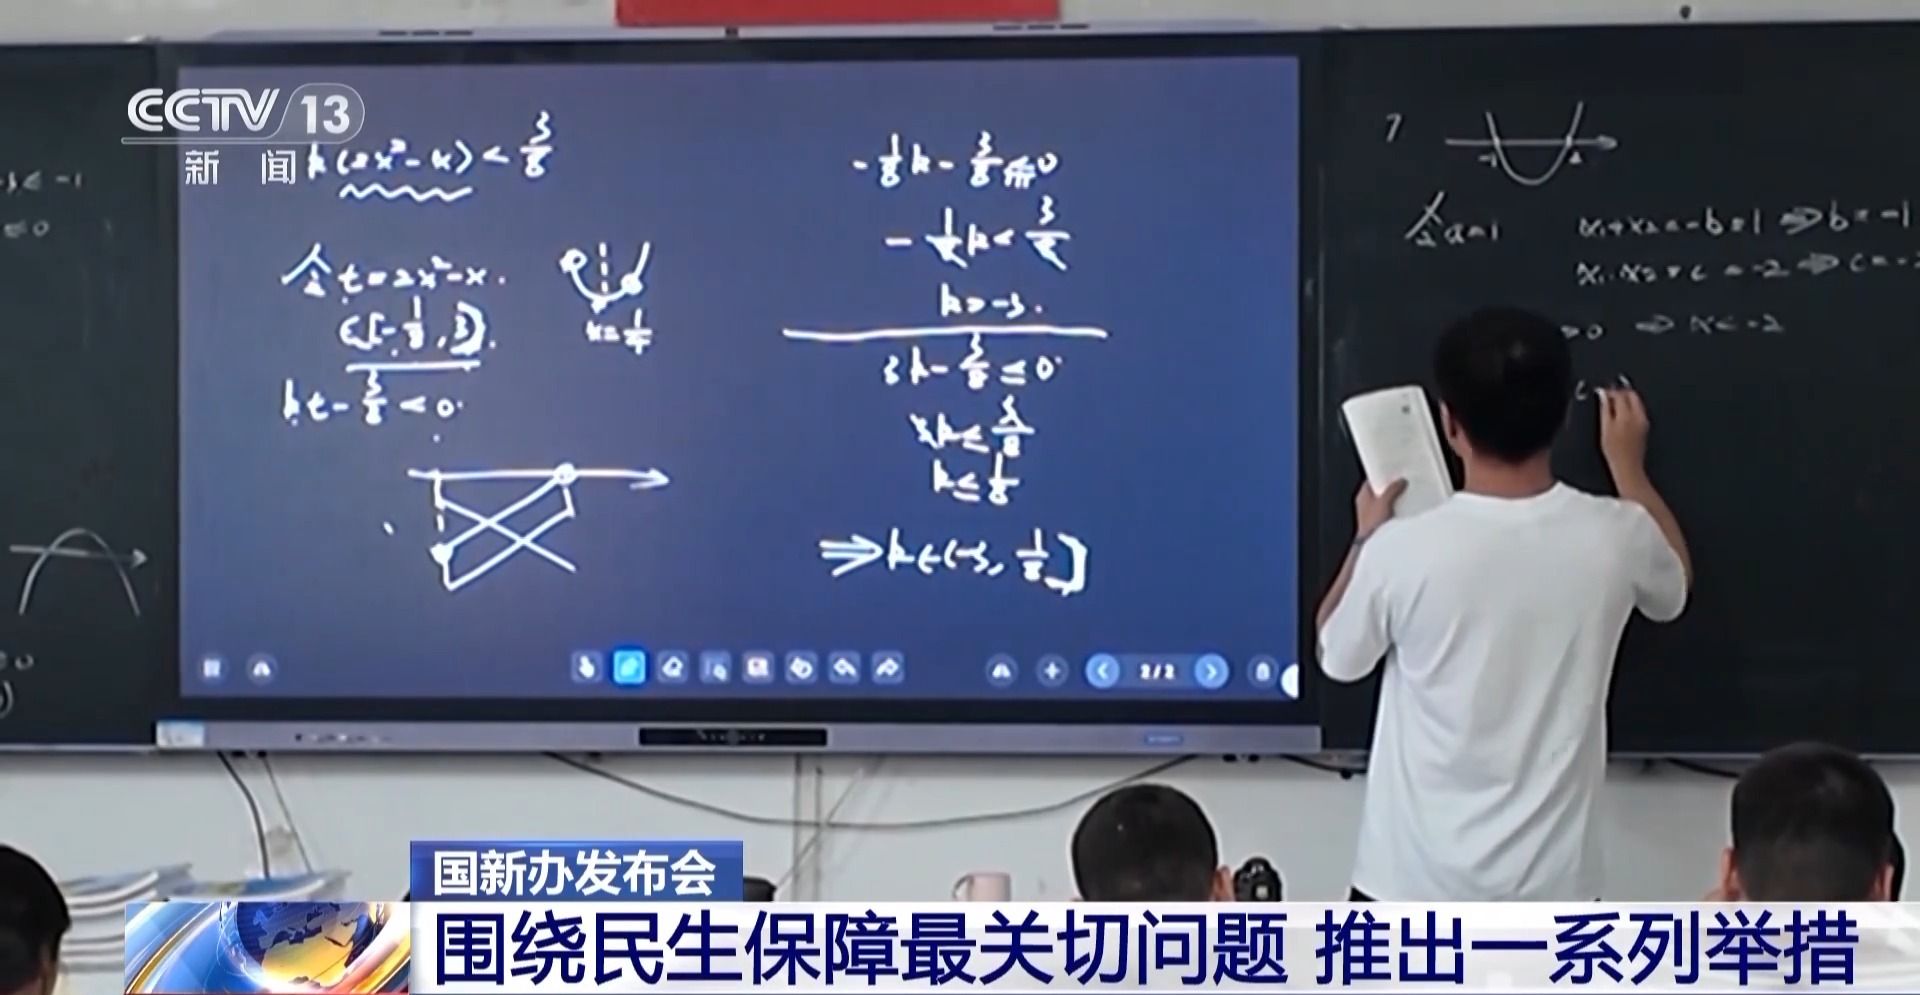 CCTV 13
新闻
k(2x²-x)<3/8
令t=2x²-x.
∈[-1/8,3).
x=1/4
kt-3/8<0.
-1/8k-3/8<0
-1/8k<3/8
k>-3.
3k-3/8≤0.
3k≤3/8
k≤1/8
⇒k∈(-3,1/8]
2/2
≤0
7
-1 2
令a=1
x₁+x₂=-b=1⇒b=-1
x₁·x₂=c=-2⇒c=-2
>0 ⇒x<-2
国新办发布会
围绕民生保障最关切问题 推出一系列举措